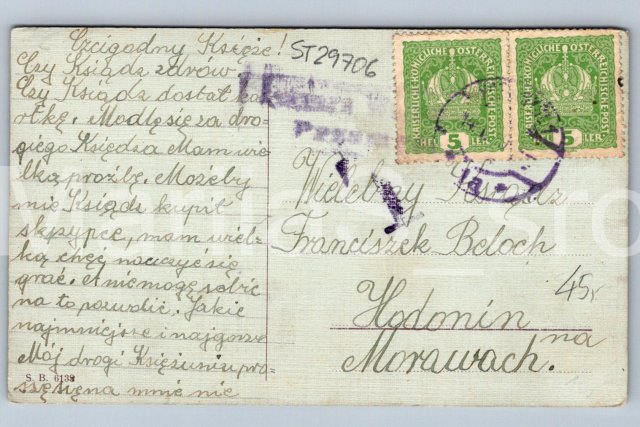 Czcigodny Księże!
Czy Ksiądz zdrów.
Czy Ksiądz dostał ka-
rtkę. Modlę się za dro-
giego Księdza Mam wie-
lką prożbę. Możeby
mie Ksiądz kupił
skrzypce, mam wiel-
ką chęć nauczyć się
grać. A nie mogę sobie
na to pozwolić. Jakie
najmniejsze i najgorsze
Mój drogi Księżuniu pro-
szę się na mnie nie
S. B. 6138
ST29706
KAISERLICHE KÖNIGLICHE ÖSTERREICHISCHE POST
5
HELLER
KAISERLICHE KÖNIGLICHE ÖSTERREICHISCHE POST
5
HELLER
Wielebny Ksiądz
Franciszek Beloch
Hodonín
na
Morawach.
45,-